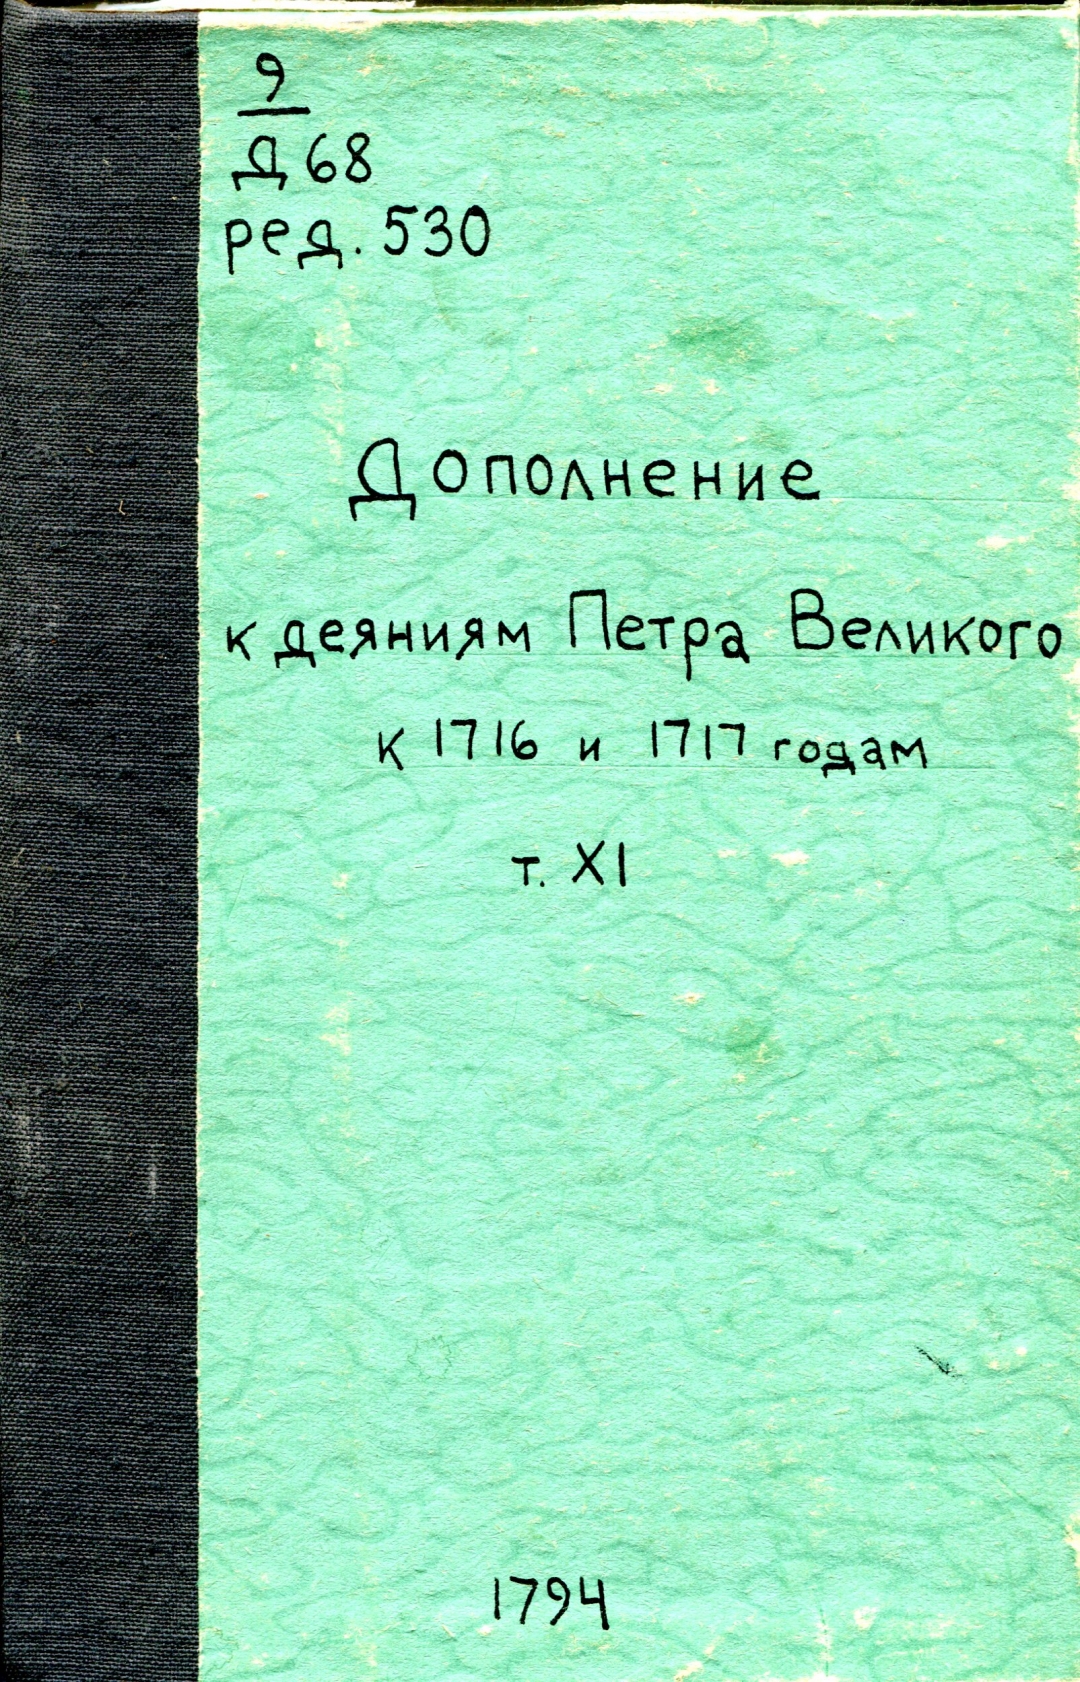 9
Д 68
ред. 530
Дополнение
к деяниям Петра Великого
к 1716 и 1717 годам
т. XI
1794